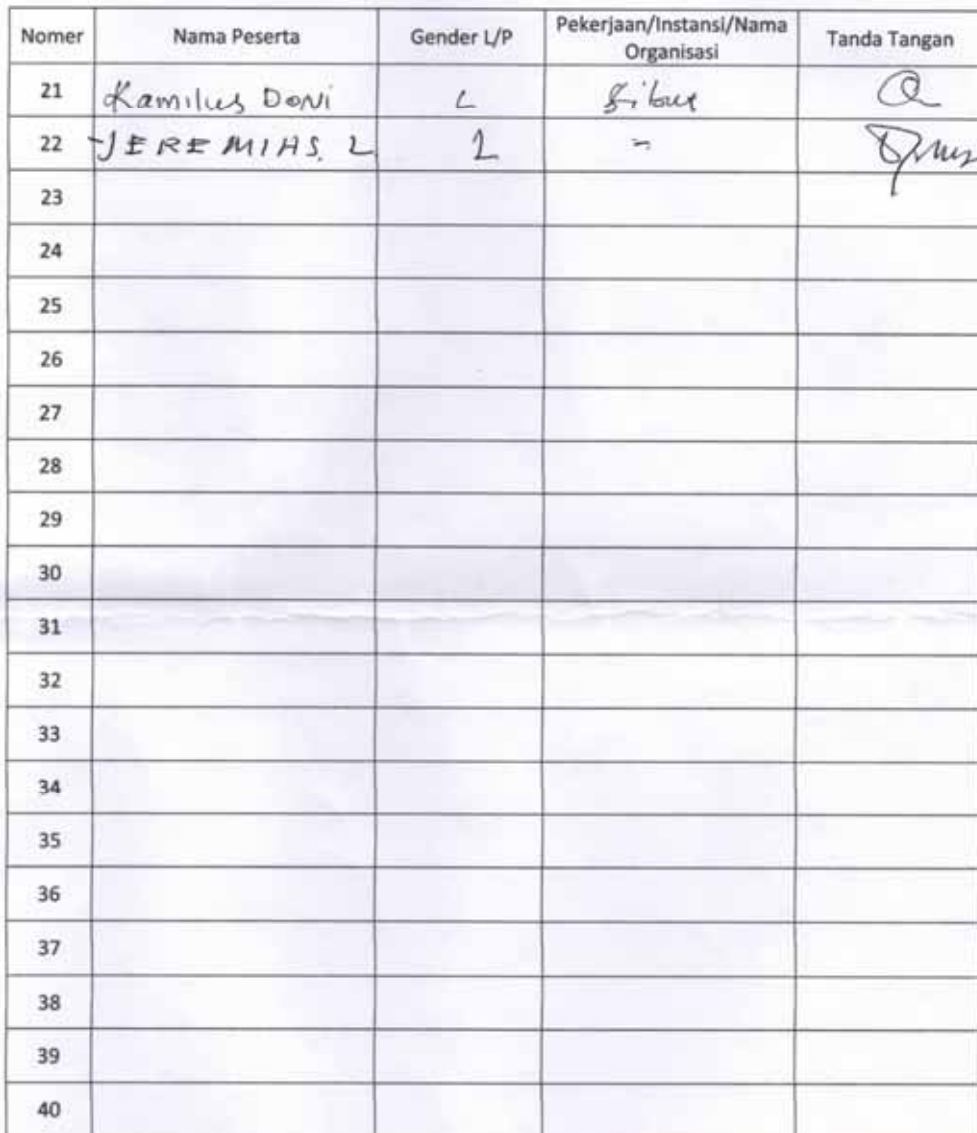 Nomer Nama Peserta Gender L/P Pekerjaan/Instansi/Nama Organisasi Tanda Tangan
21 Kamilus Doni L
22 JEREMIAS. L L
23
24
25
26
27
28
29
30
31
32
33
34
35
36
37
38
39
40